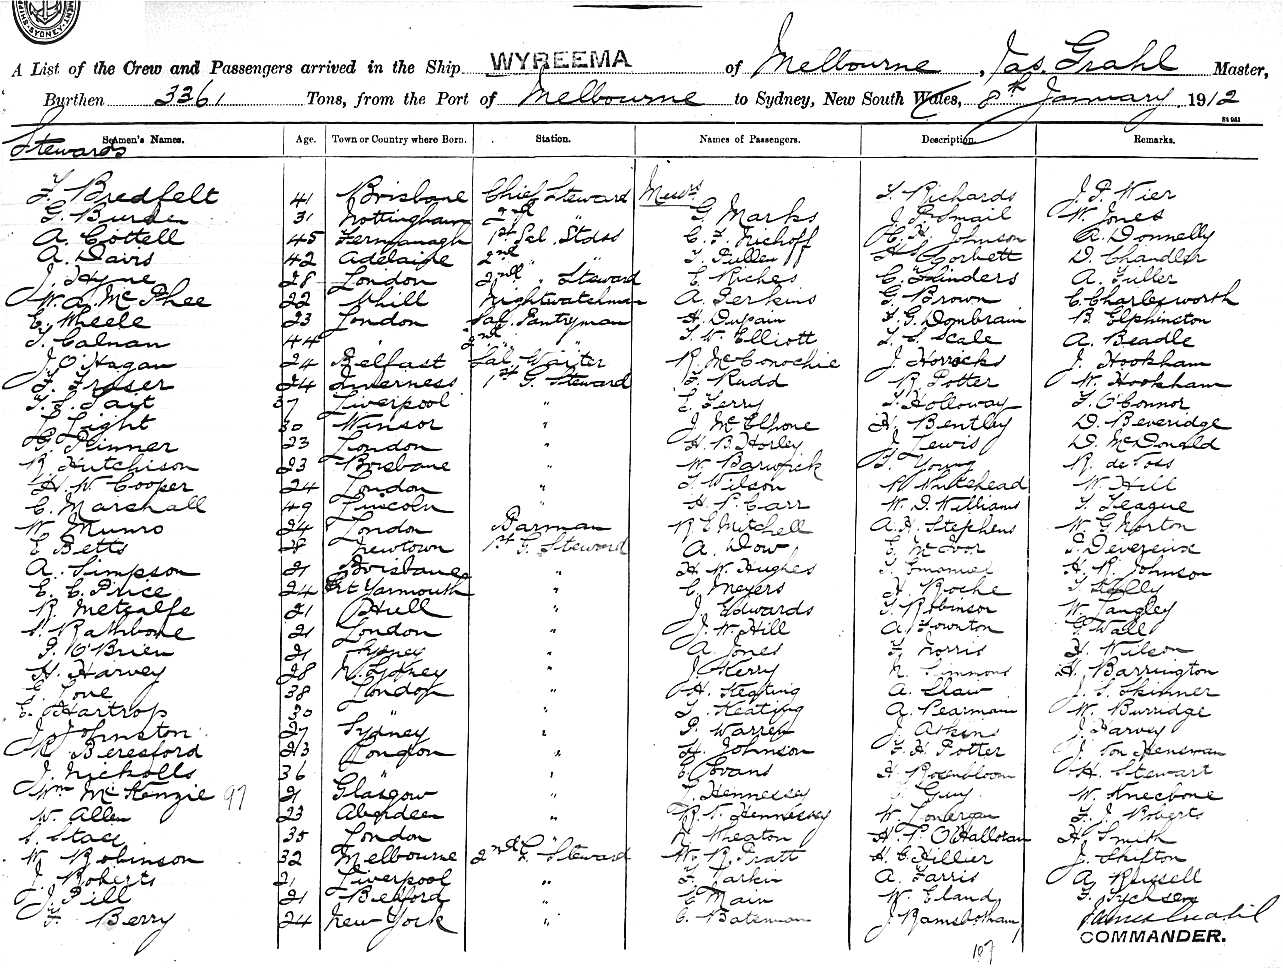 A List of the Crew and Passengers arrived in the Ship WYREEMA of Melbourne, Jas. Grahl Master,
Burthen 3361 Tons, from the Port of Melbourne to Sydney, New South Wales, 8th January 1912
Seamen's Names. Age. Town or Country where Born. Station. Names of Passengers. Description. Remarks.
Stewards
F. Bredfelt 41 Brisbane Chief Steward Messrs F. Richards J. F. Wier
G. Burden 31 Nottingham 2nd " G. Marks J. P. Smail W. Jones
A. Cottell 45 Fermanagh 1st Sal. Stdss C. F. Nichoff H. Johnson A. Donnelly
A. Davis 42 Adelaide 2nd " T. Pullen H. Corbett D. Chandler
J. Hyne 28 London 2nd " Steward C. Riches C. Flinders A. Fuller
W. A. McPhee 22 Nhill Nightwatchman A. Perkins G. Brown C. Charlesworth
C. Wheele 23 London Sal. Pantryman H. Dupain F. G. Dombrain B. Elphinston
T. Calnan 44 " 2nd " T. W. Elliott T. S. Scale A. Beadle
J. O'Hagan 24 Belfast Sal. Waiter R. McConochie J. Horrocks J. Hookham
F. Fraser 24 Inverness 1st G. Steward F. Rudd R. Potter W. Hookham
F. S. Tait 37 Liverpool " C. Terry T. Holloway T. O'Connor
L. Light 30 Winsor " J. McElhone H. Bentley D. Beveridge
G. Pinner 23 London " H. B. Horley J. Lewis D. McDonald
R. Hutchison 23 Brisbane " W. Barwick B. Young R. de Voss
H. W. Cooper 24 London " T. Wilson W. Whitehead W. Hill
C. Marshall 49 Lincoln " H. S. Carr W. D. Williams T. Teague
W. Munro 24 London Barman R. E. Mitchell A. H. Stephens W. G. Norton
E. Betts 28 Newtown 1st G. Steward A. Dow C. McIvor P. Devereux
A. Simpson 21 Brisbane " H. W. Hughes S. Emanuel H. R. Johnson
C. C. Price 24 Gt Yarmouth " C. Meyers H. Roche T. Kelly
R. Metcalfe 21 Hull " J. Edwards T. Robinson W. Langley
S. Rathbone 21 London " J. W. Hill A. Townton G. Wall
P. O'Brien 21 Sydney " A. Jones F. Norris H. Wilson
H. Harvey 28 N. Sydney " J. Kerry N. Simmons H. Barrington
G. Tone 38 London " H. Keating A. Shaw J. S. Skinner
C. Hartrop 30 " " T. Keating A. Pearman W. Burridge
J. Johnston 27 Sydney " P. Warren J. Athens J. Harvey
R. Beresford 23 London " H. Johnson F. H. Potter J. Von Hensman
J. Nicholls 36 " " C. Evans H. Rosenbloom H. Stewart
Wm McKenzie 97 21 Glasgow " T. Hennessey T. Guy W. Kneebone
W. Allen 23 Aberdeen " R. T. Hennessey W. Lonergan F. J. Roberts
S. Stace 35 London " N. Wheaton H. P. O'Hallotan H. Smith
W. Robinson 32 Melbourne 2nd G. Steward W. R. Pratt H. C. Hillier J. Shifton
J. Roberts 21 Liverpool " F. Larkin A. Farris A. Russell
J. Pill 21 Bedford " E. Main W. Eland F. Tychsen
F. Berry 24 New York " C. Bateman J. Ramsbotham
COMMANDER.
107